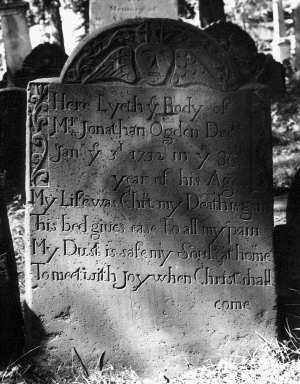 Memory of
Here Lyeth yᵉ Body of
Mʳ Jonathan Ogden Decᵈ
Janʸ yᵉ 3ᵈ 1732 in yᵉ 86
year of his Age
My Life was Christ my Death is gain
This bed gives ease to all my pain
My Dust is safe my Soul at home
To meet with Joy when Christ shall
come